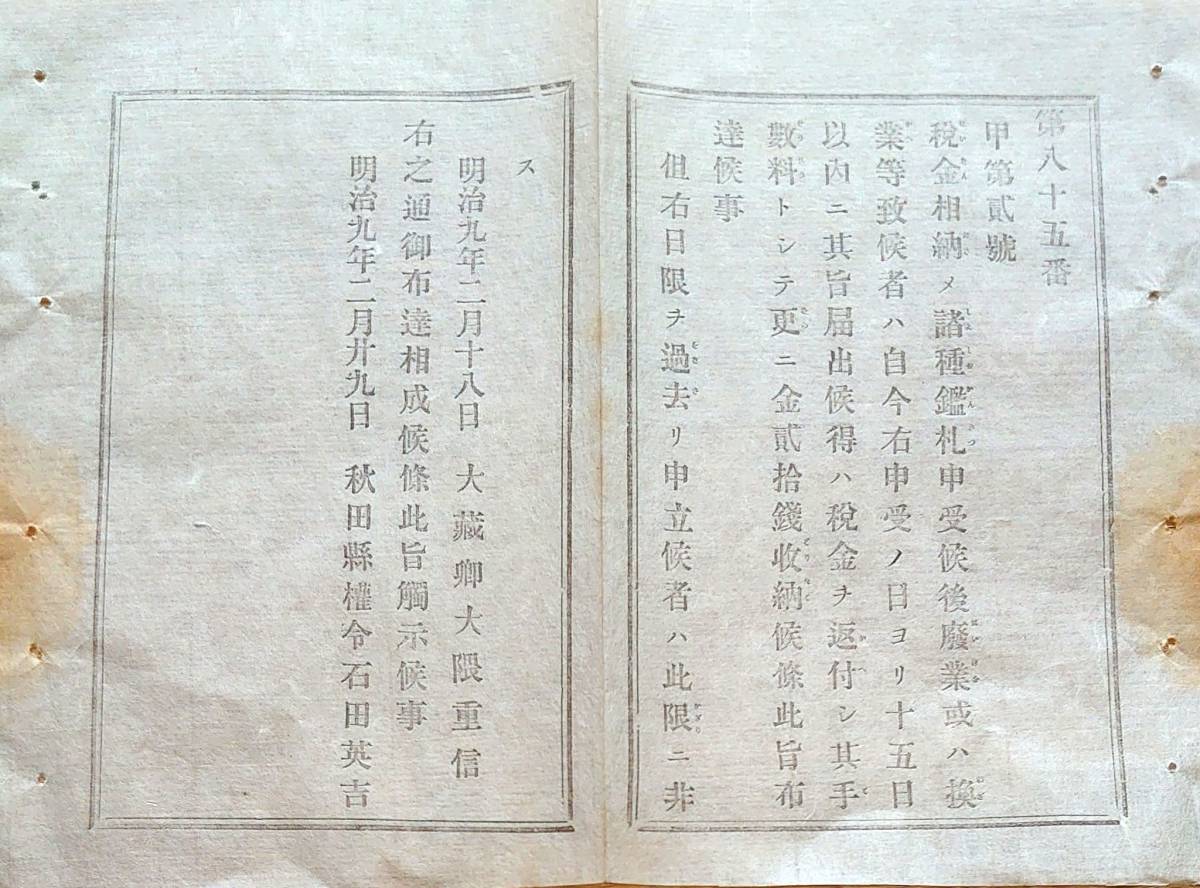 第八十五番
甲第貳號
税金相納メ諸種鑑札申受候後廢業或ハ換
業等致候者ハ自今右申受ノ日ヨリ十五日
以内ニ其旨屆出候得ハ税金ヲ返付シ其手
數料トシテ更ニ金貳拾錢收納候條此旨布
達候事
但右日限ヲ過去リ申立候者ハ此限ニ非
ス
明治九年二月十八日 大藏卿大隈重信
右之通御布達相成候條此旨觸示候事
明治九年二月廿九日 秋田縣權令石田英吉